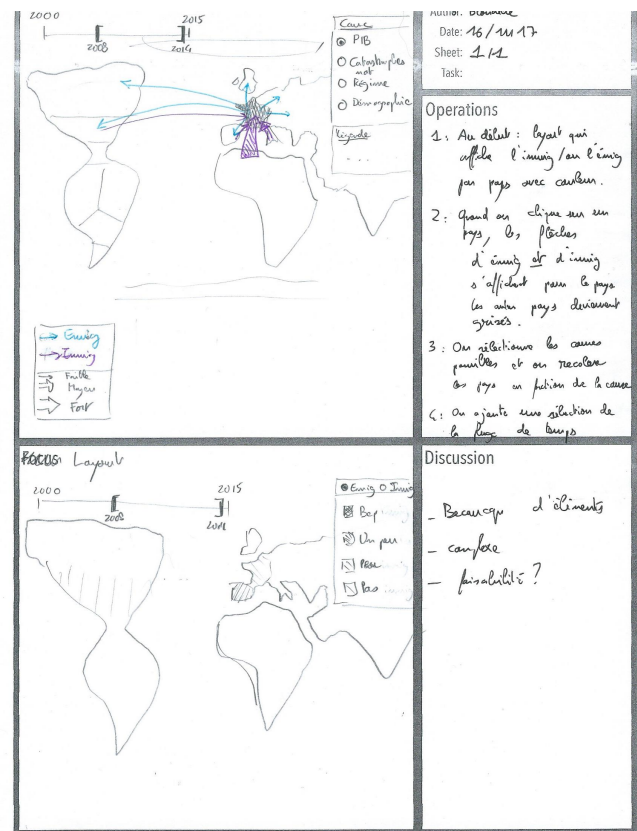 2000
2015
2008
2014
Cause
PIB
Catastrophes
nat
Régime
Démographie
Légende
...
Emig
Immig
Faible
Moyen
Fort
Date: 16/11/17
Sheet: 1/1
Task:
Operations
1: Au début : layout qui
affiche l'immig/ou l'émig
par pays avec couleur.
2: Quand on clique sur un
pays, les flèches
d'émig et d'immig
s'affichent pour le pays
les autres pays deviennent
grisés.
3: On sélectionne les causes
possibles et on recolore
les pays en fction de la cause
4: On ajoute une sélection de
la plage de temps
FOCUS
Layout
2000
2015
2008
2014
Emig O Immig
Bcp
Un peu
Pas
Discussion
- Beaucoup d'éléments
- complexe
- faisabilité ?